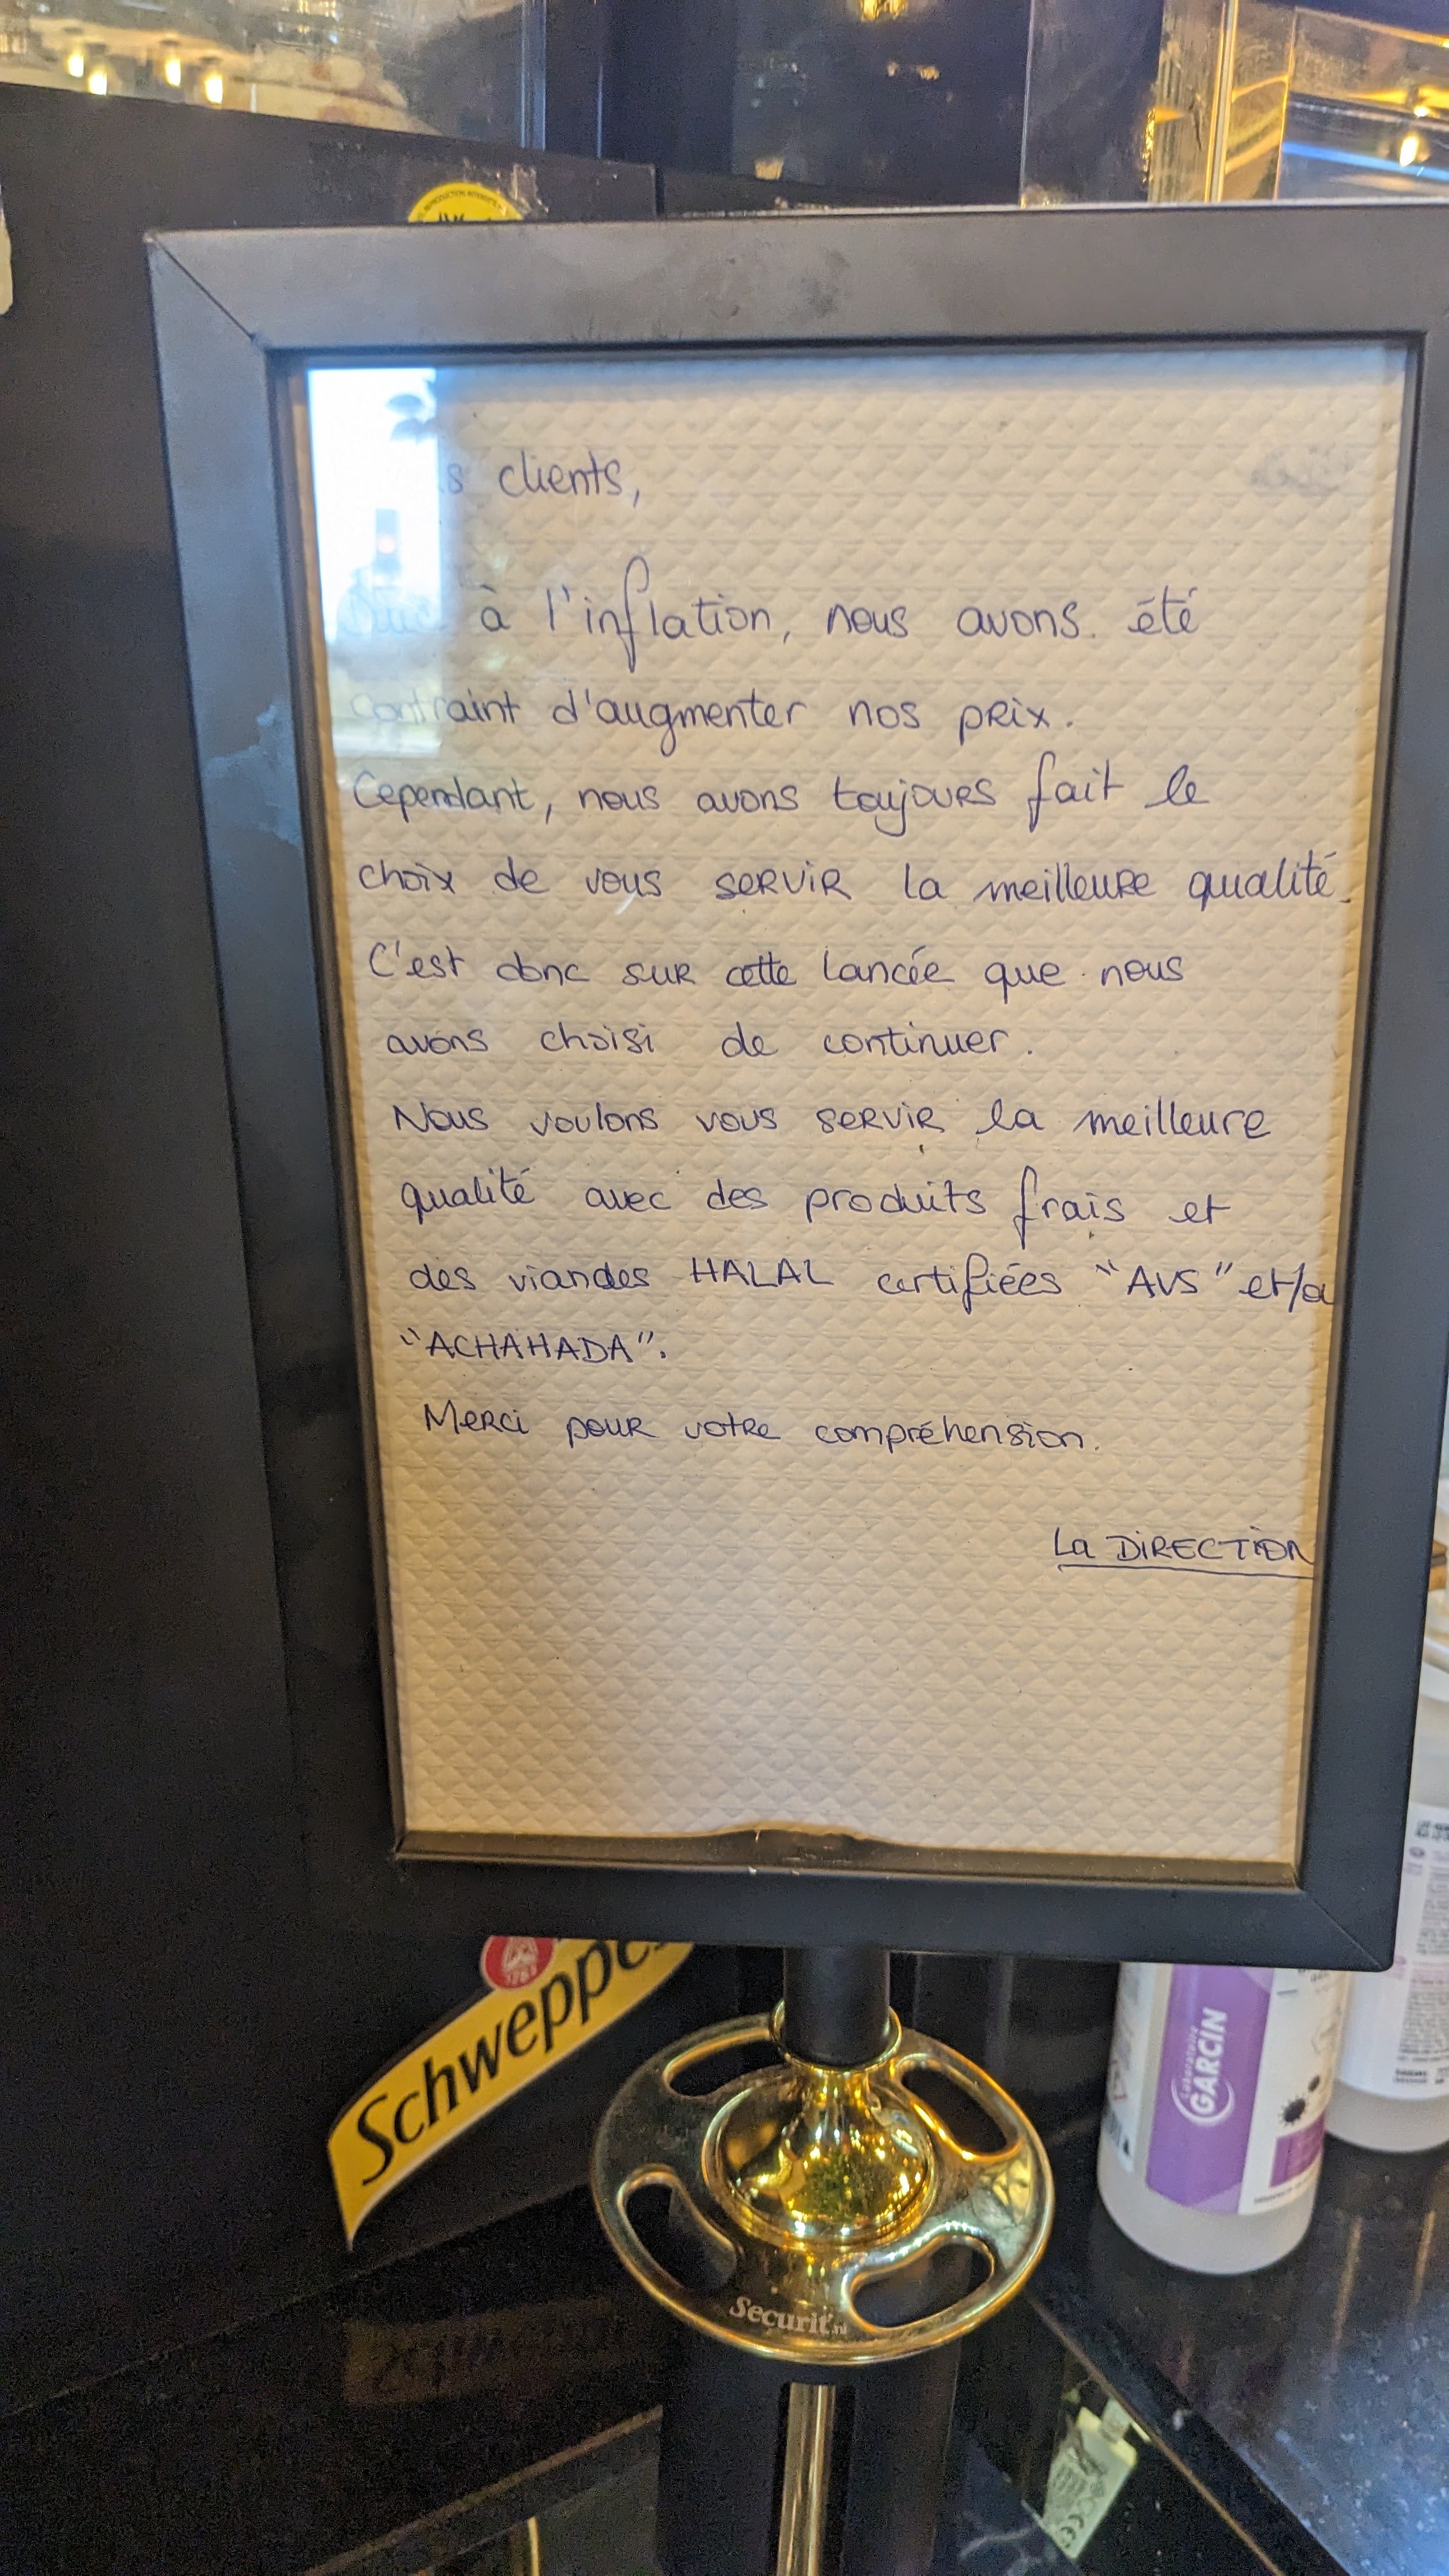 clients,
à l'inflation, nous avons été
contraint d'augmenter nos prix.
Cependant, nous avons toujours fait le
choix de vous servir la meilleure qualité.
C'est donc sur cette lancée que nous
avons choisi de continuer.
Nous voulons vous servir la meilleure
qualité avec des produits frais et
des viandes HALAL certifiées "AVS" et/o
"ACHAHADA".
Merci pour votre compréhension.
La DIRECTION
Schweppes
1783
GARCIN
Securit.nl